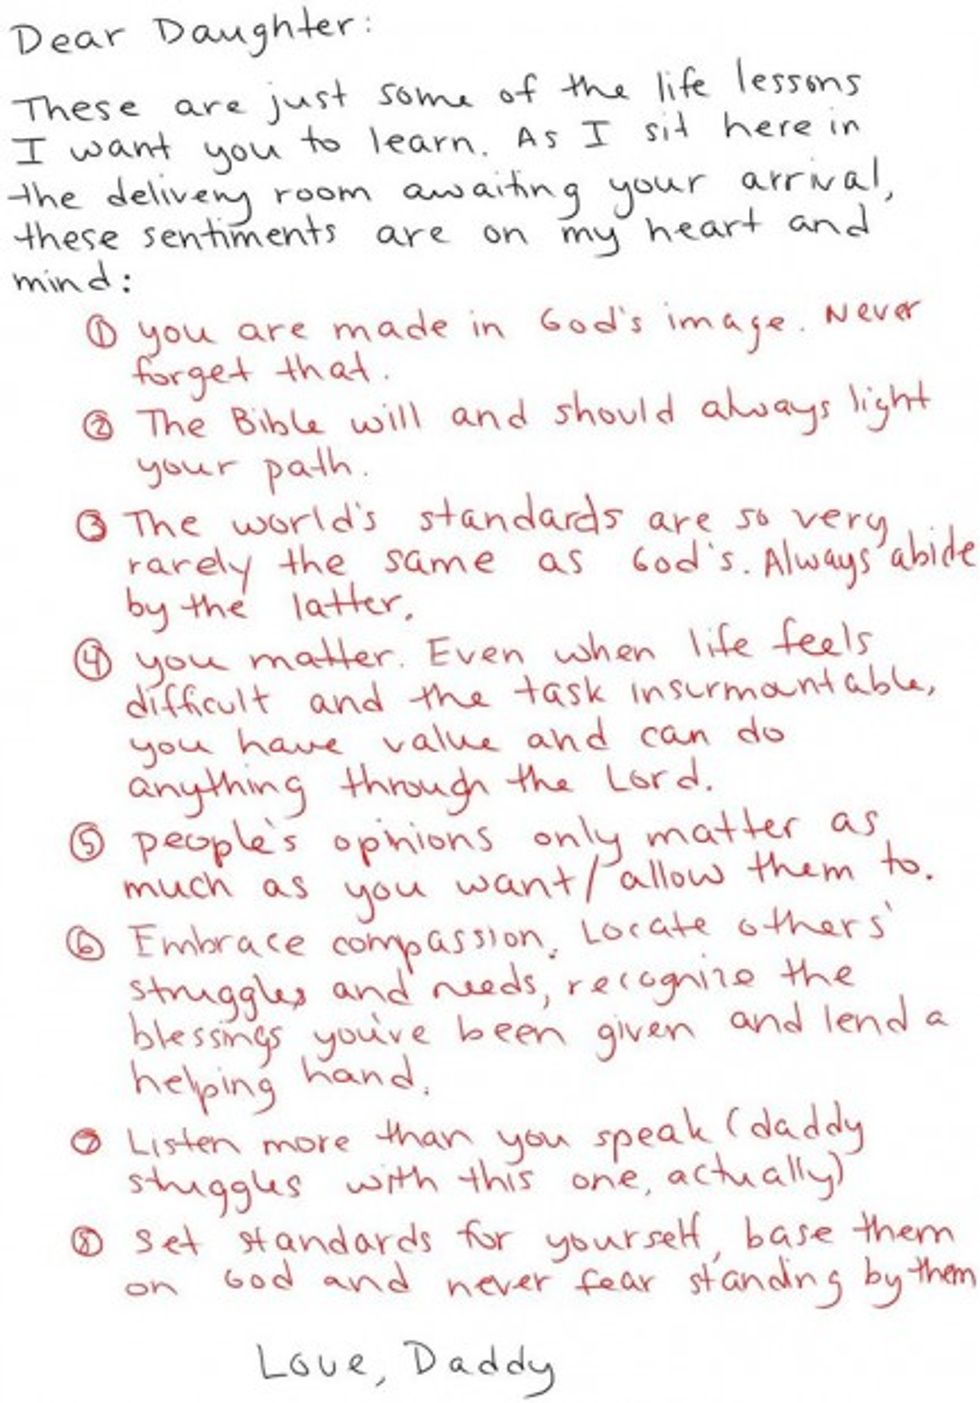 Dear Daughter:
These are just some of the life lessons
I want you to learn. As I sit here in
the delivery room awaiting your arrival,
these sentiments are on my heart and
mind:
① you are made in God's image. Never
forget that.
② The Bible will and should always light
your path.
③ The world's standards are so very
rarely the same as God's. Always abide
by the latter.
④ you matter. Even when life feels
difficult and the task insurmountable,
you have value and can do
anything through the Lord.
⑤ people's opinions only matter as
much as you want/allow them to.
⑥ Embrace compassion. Locate others'
struggles and needs, recognize the
blessings you've been given and lend a
helping hand.
⑦ Listen more than you speak (daddy
struggles with this one, actually)
⑧ Set standards for yourself, base them
on God and never fear standing by them
Love, Daddy